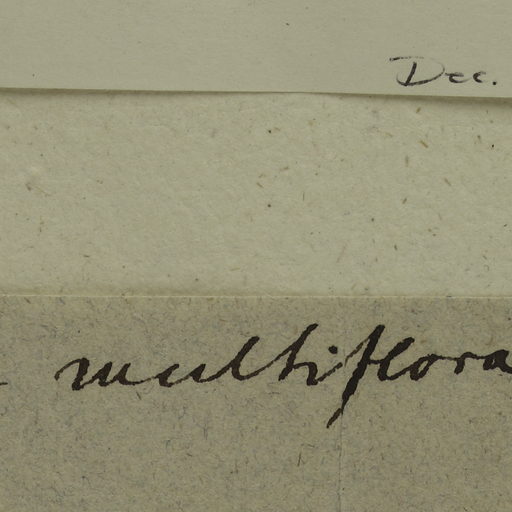 Dec.
multiflora